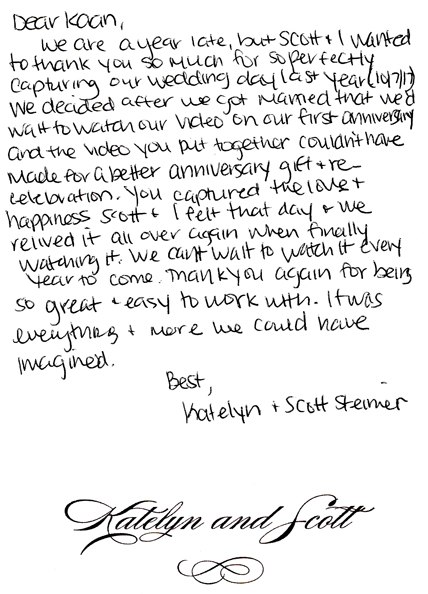 Dear Kaan,
We are a year late, but Scott + I wanted
to thank you so much for so perfectly
capturing our wedding day last year (10/7/17)
We decided after we got married that we'd
wait to watch our video on our first anniversary
and the video you put together couldn't have
made for a better anniversary gift + re-
celebration. You captured the love +
happiness Scott + I felt that day + we
relived it all over again when finally
watching it. We can't wait to watch it every
year to come. Thank you again for being
so great + easy to work with. It was
everything + more we could have
imagined.
Best,
Katelyn + Scott Steimer
Katelyn and Scott